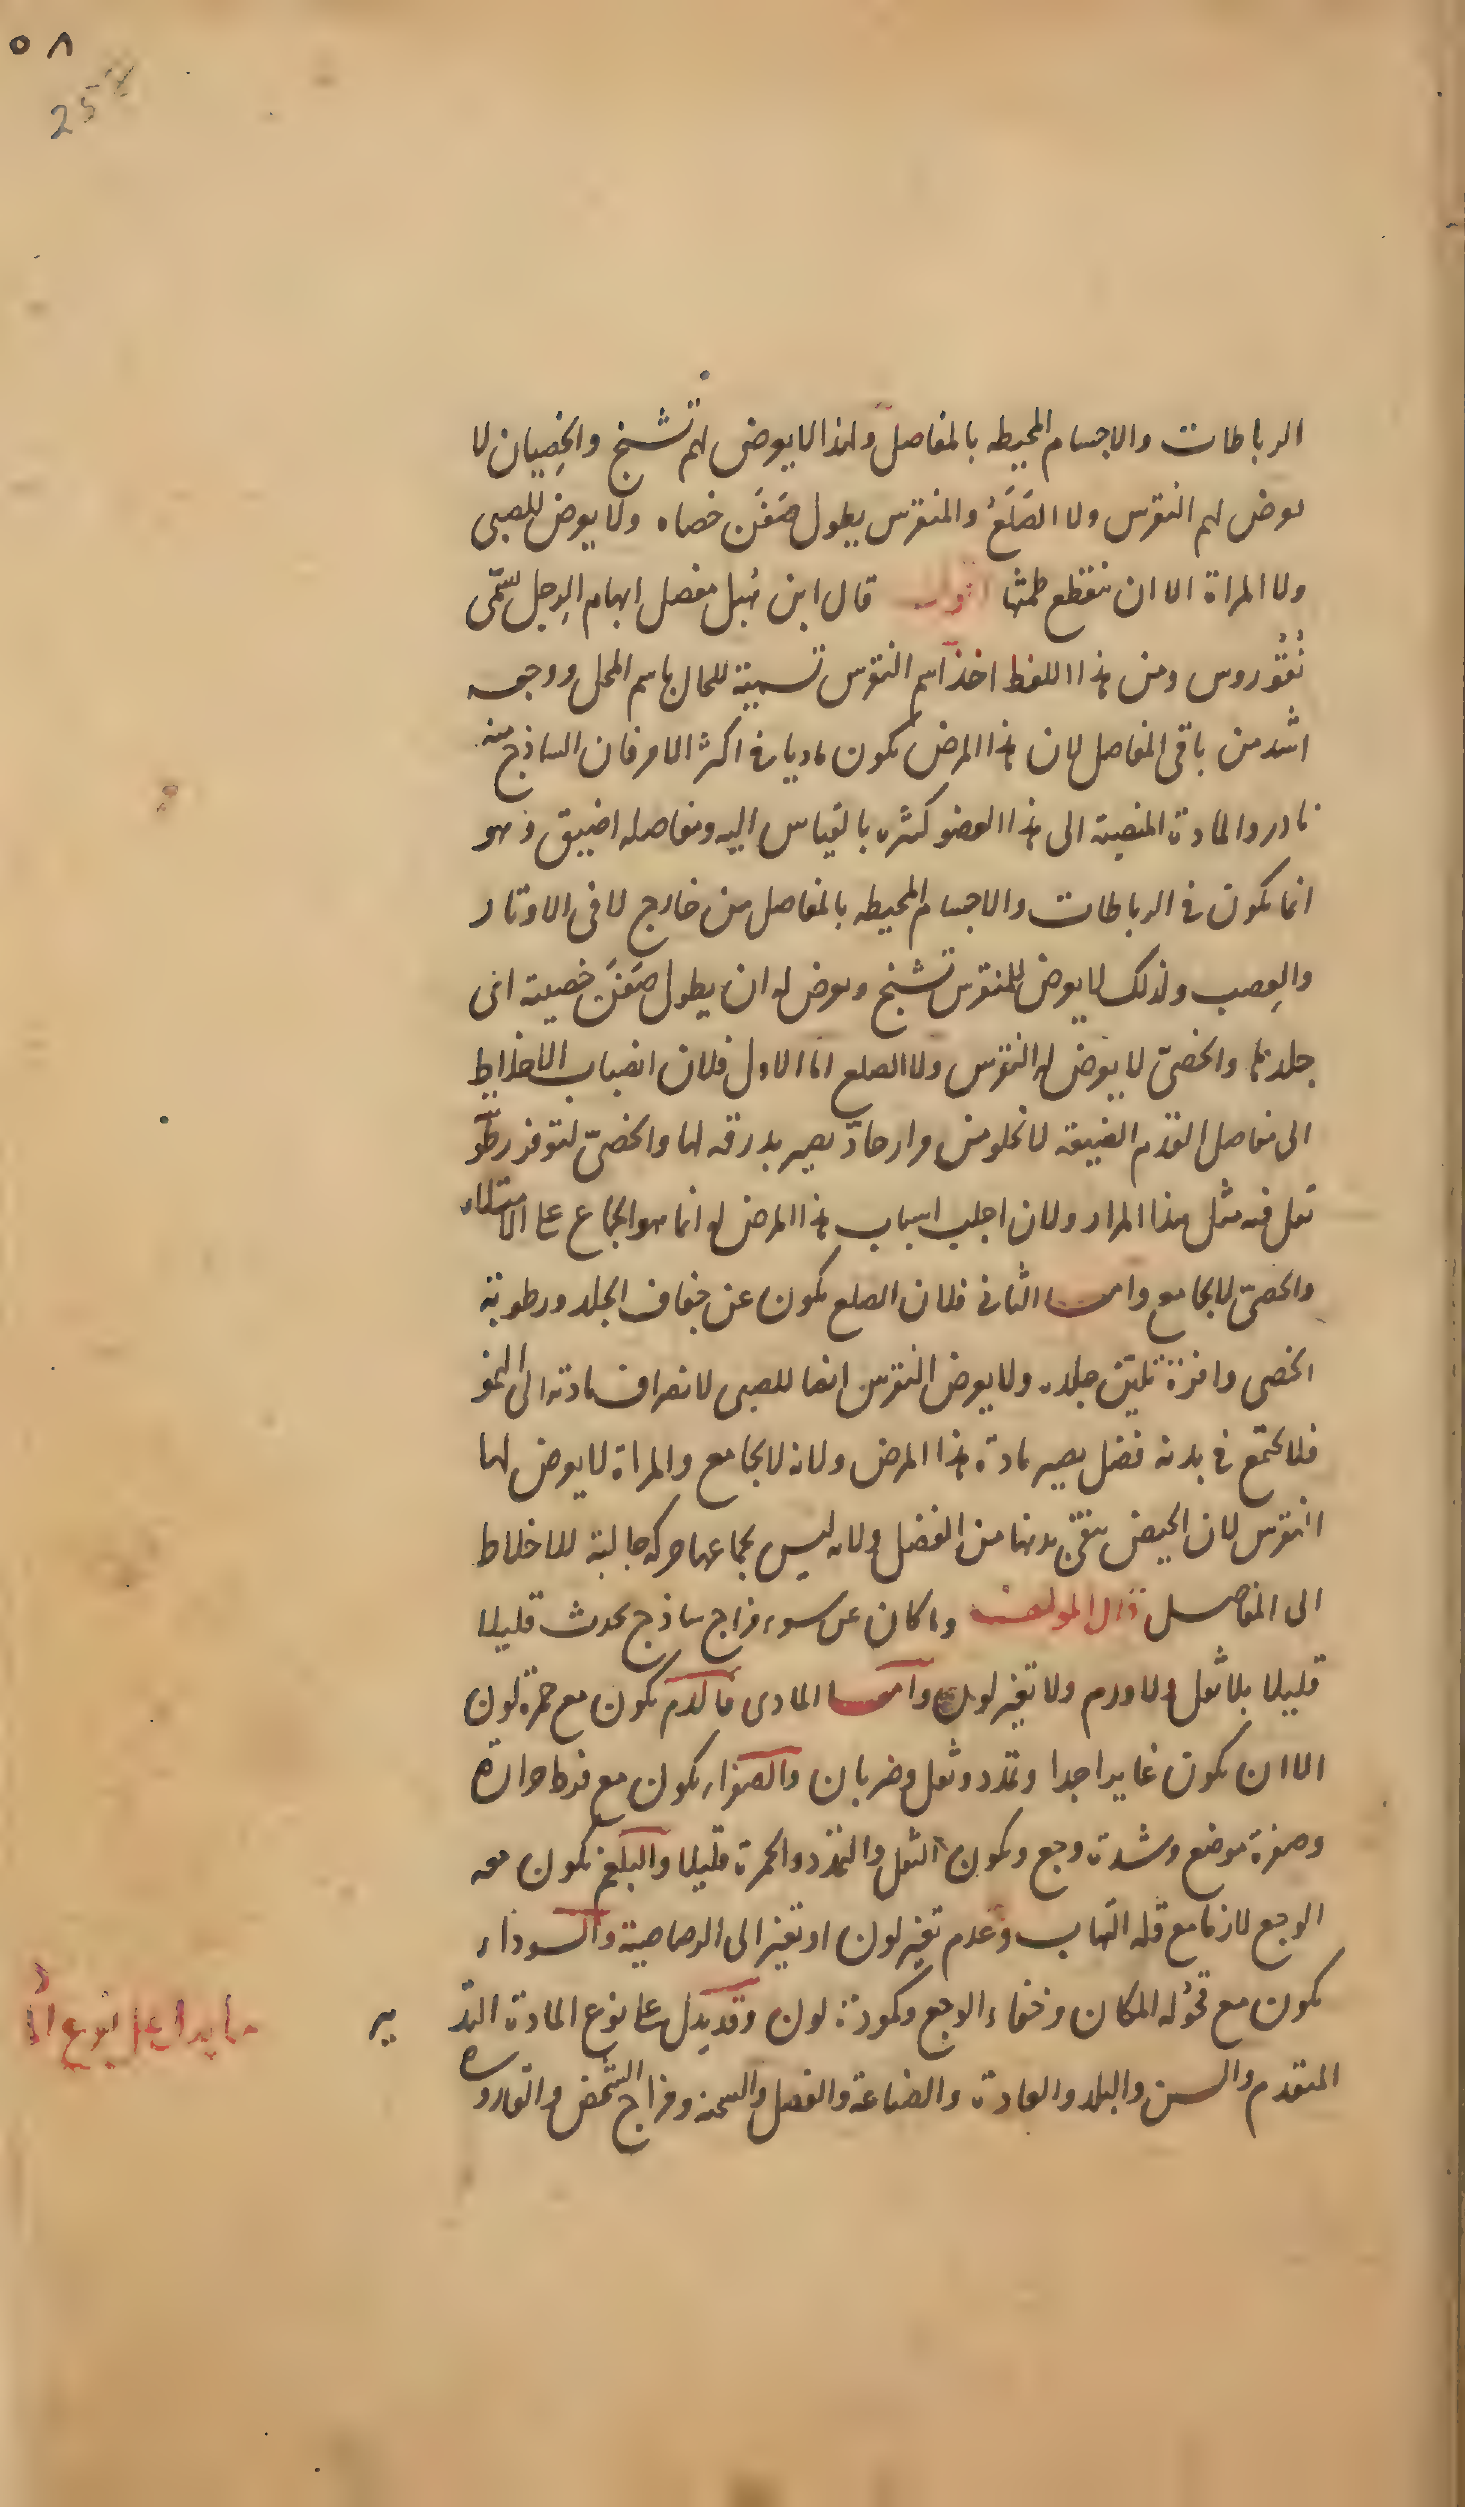 ٥٨
25
الرباطات والاجسام المحيطه بالمفاصل ولهذا لا يعرض لهم تشنج والخصيان لا
يعرض لهم النقرس ولا الصَلَعُ والمنقرس يطول صَفَن خصاه ولا يعرض للصبى
ولا المراة الا ان ينقطع طمثها اقول قال ابن هُبل مفصل ابهام الرِجل يسَمّى
نُقُوروس ومن هذا اللفظ اخذ اسم النقرس تسمية للحال باسم المحل ووجعه
اشد من باقى المفاصل لان هذا المرض يكون ماديا فى اكثر الامر فان الساذج منه
نادر والمادة المنصبة الى هذا العضو كثره بالقياس اليه ومفاصله اضيق وهو
انما يكون فى الرباطات والاجسام المحيطه بالمفاصل من خارج لا فى الاوتار
والعصب ولذلك لا يعرض للمنقرس تشنج ويعرض له ان يطول صَفَن خصيته اى
جلدها والخصىّ لا يعرض له النقرس ولا الصلع اما الاول فلان انصباب الاخلاط
الى مفاصل القدم الضيقه لا يخلو من مرار حادّ يصير بدرقه لها والخصىّ لتوفر رطو
تقل فيه مثل هذا المرار ولان اجلب اسباب هذا المرض له انما هو الجماع على الامتلاء
والخصىّ لا يجامع واما الثانى فلان الصلع يكون عن جفاف الجلد ورطوبة
الخصى وافرة تليّن جلده ولا يعرض النقرس ايضا للصبى لانصراف مادته الى النمو
فلا يجتمع فى بدنه فضل يصير مادة هذا المرض ولانه لا يجامع والمراة لا يعرض لها
النقرس لان الحيض ينقى بدنها من الفضل ولانه ليس بجماعها حركه جالبة للاخلاط
الى المفاصل قال المولف وما كان عن سوء مزاج ساذج يحدث قليلا
قليلا بلا ثقل ولا ورم ولا تغير لون واما المادى فالدم يكون مع حمرة لون
الا ان يكون غايرا جدا وتمدد وثقل وضربان والصفراء يكون مع فرط حرارة
وصفرة موضع وشدة وجع ويكون الثقل والتمدد والحمرة قليلا والبلغم يكون معه
الوجع لازما مع قله التهاب وعدم تغير لون او تغير الى الرصاصية والسوداء
يكون مع قحوله المكان وخفاء الوجع وكمودة لون وقد يدل على نوع المادة التد بير
المتقدم والسن والبلد والعادة والصناعة والفصل والسحنه ومزاج الشخص والقاروره
ما يدل على نوع الما